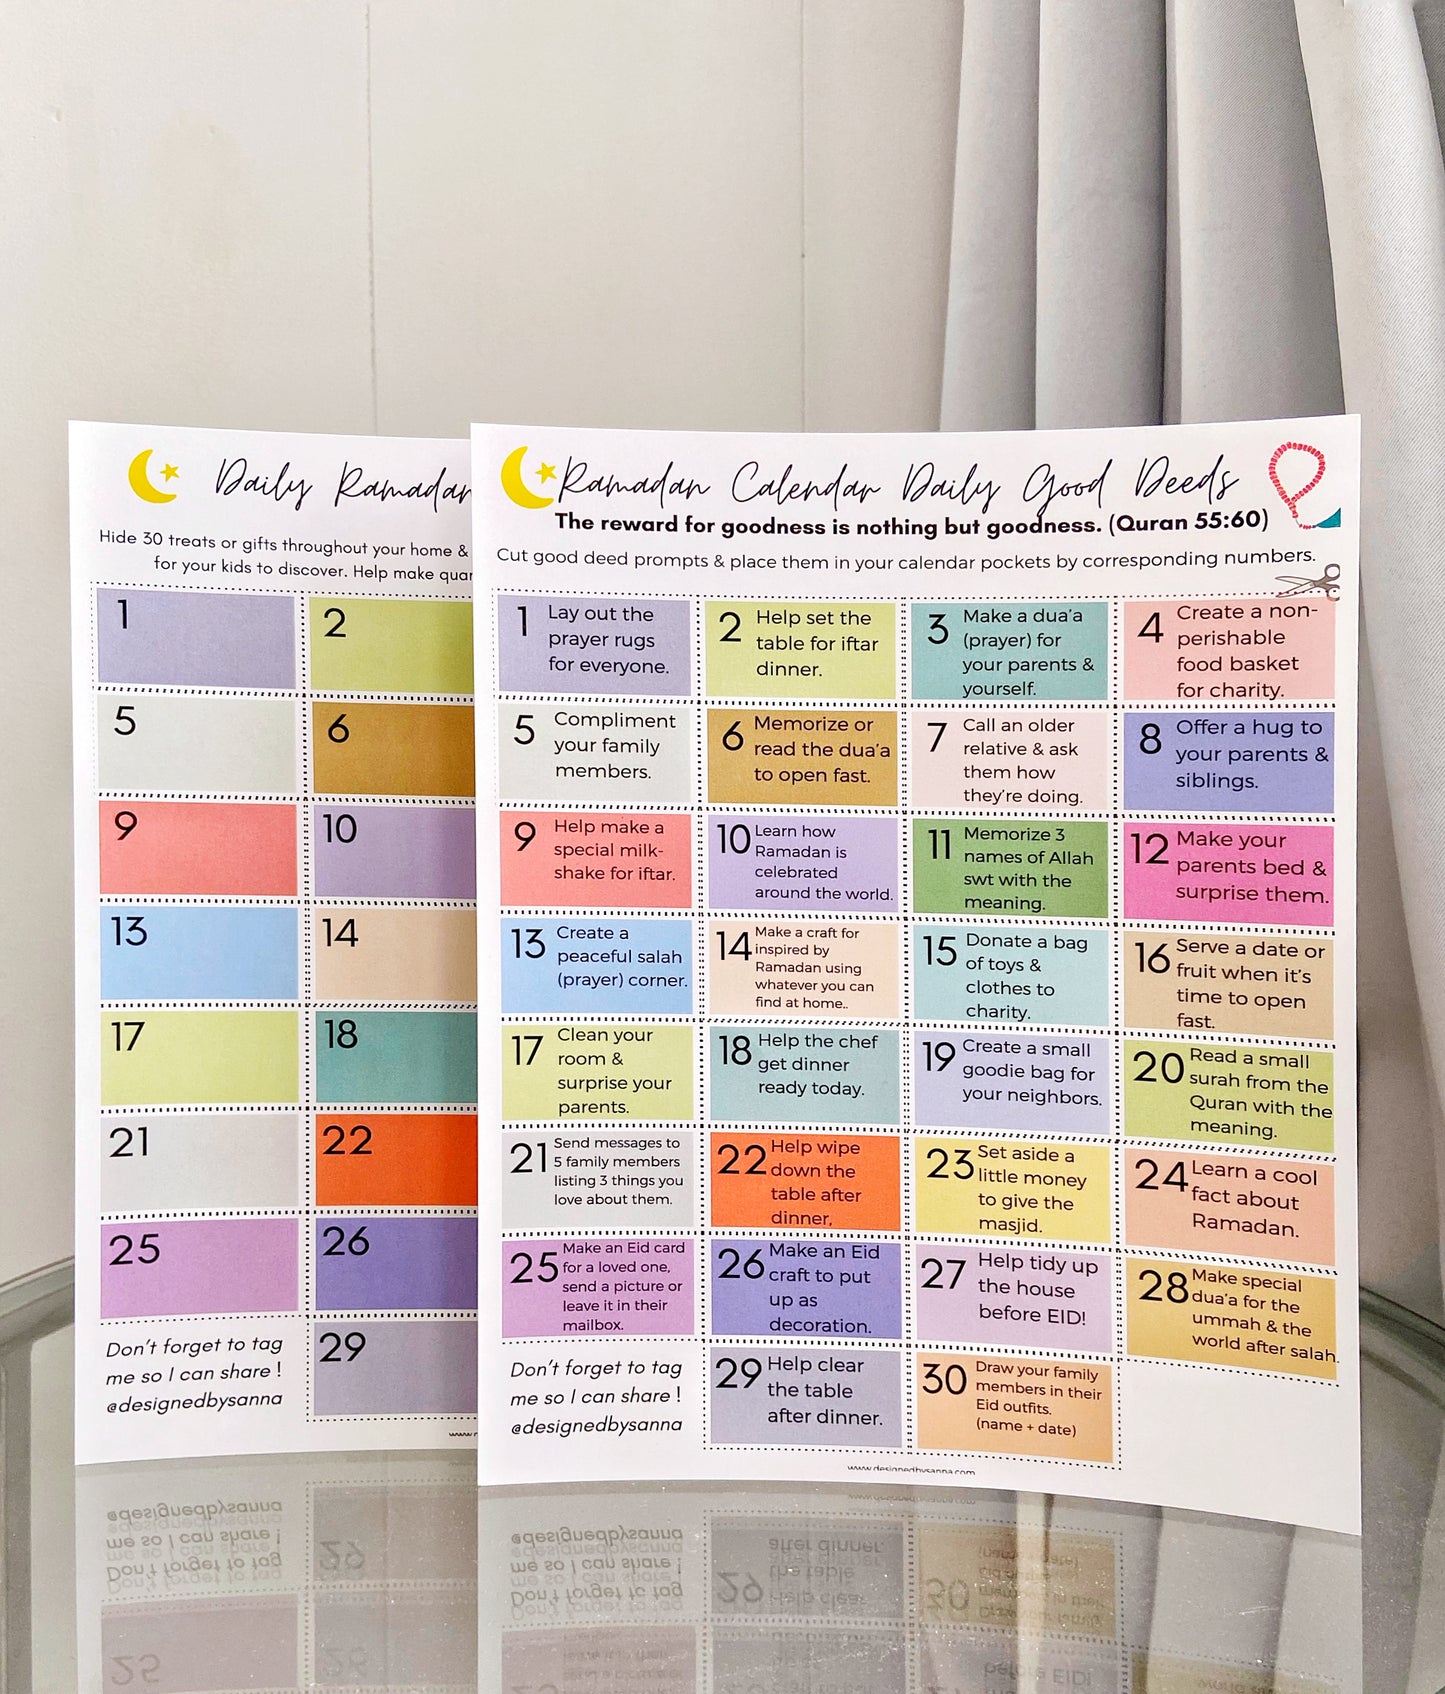 Daily Ramadan
Hide 30 treats or gifts throughout your home &
for your kids to discover. Help make
1
2
5
6
9
10
13
14
17
18
21
22
25
26
29
Don't forget to tag
me so I can share!
@designedbysanna
Ramadan Calendar Daily Good Deeds
The reward for goodness is nothing but goodness. (Quran 55:60)
Cut good deed prompts & place them in your calendar pockets by corresponding numbers.
1
Lay out the
prayer rugs
for everyone.
2
Help set the
table for iftar
dinner.
3
Make a dua'a
(prayer) for
your parents &
yourself.
4
Create a non-
perishable
food basket
for charity.
5
Compliment
your family
members.
6
Memorize or
read the dua'a
to open fast.
7
Call an older
relative & ask
them how
they're doing.
8
Offer a hug to
your parents &
siblings.
9
Help make a
special milk-
shake for iftar.
10
Learn how
Ramadan is
celebrated
around the world.
11
Memorize 3
names of Allah
swt with the
meaning.
12
Make your
parents bed &
surprise them.
13
Create a
peaceful salah
(prayer) corner.
14
Make a craft for
inspired by
Ramadan using
whatever you can
find at home..
15
Donate a bag
of toys &
clothes to
charity.
16
Serve a date or
fruit when it's
time to open
fast.
17
Clean your
room &
surprise your
parents.
18
Help the chef
get dinner
ready today.
19
Create a small
goodie bag for
your neighbors.
20
Read a small
surah from the
Quran with the
meaning.
21
Send messages to
5 family members
listing 3 things you
love about them.
22
Help wipe
down the
table after
dinner,
23
Set aside a
little money
to give the
masjid.
24
Learn a cool
fact about
Ramadan.
25
Make an Eid card
for a loved one,
send a picture or
leave it in their
mailbox.
26
Make an Eid
craft to put
up as
decoration.
27
Help tidy up
the house
before EID!
28
Make special
dua'a for the
ummah & the
world after salah.
Don't forget to tag
me so I can share!
@designedbysanna
29
Help clear
the table
after dinner.
30
Draw your family
members in their
Eid outfits.
(name + date)
www.designedbysanna.com